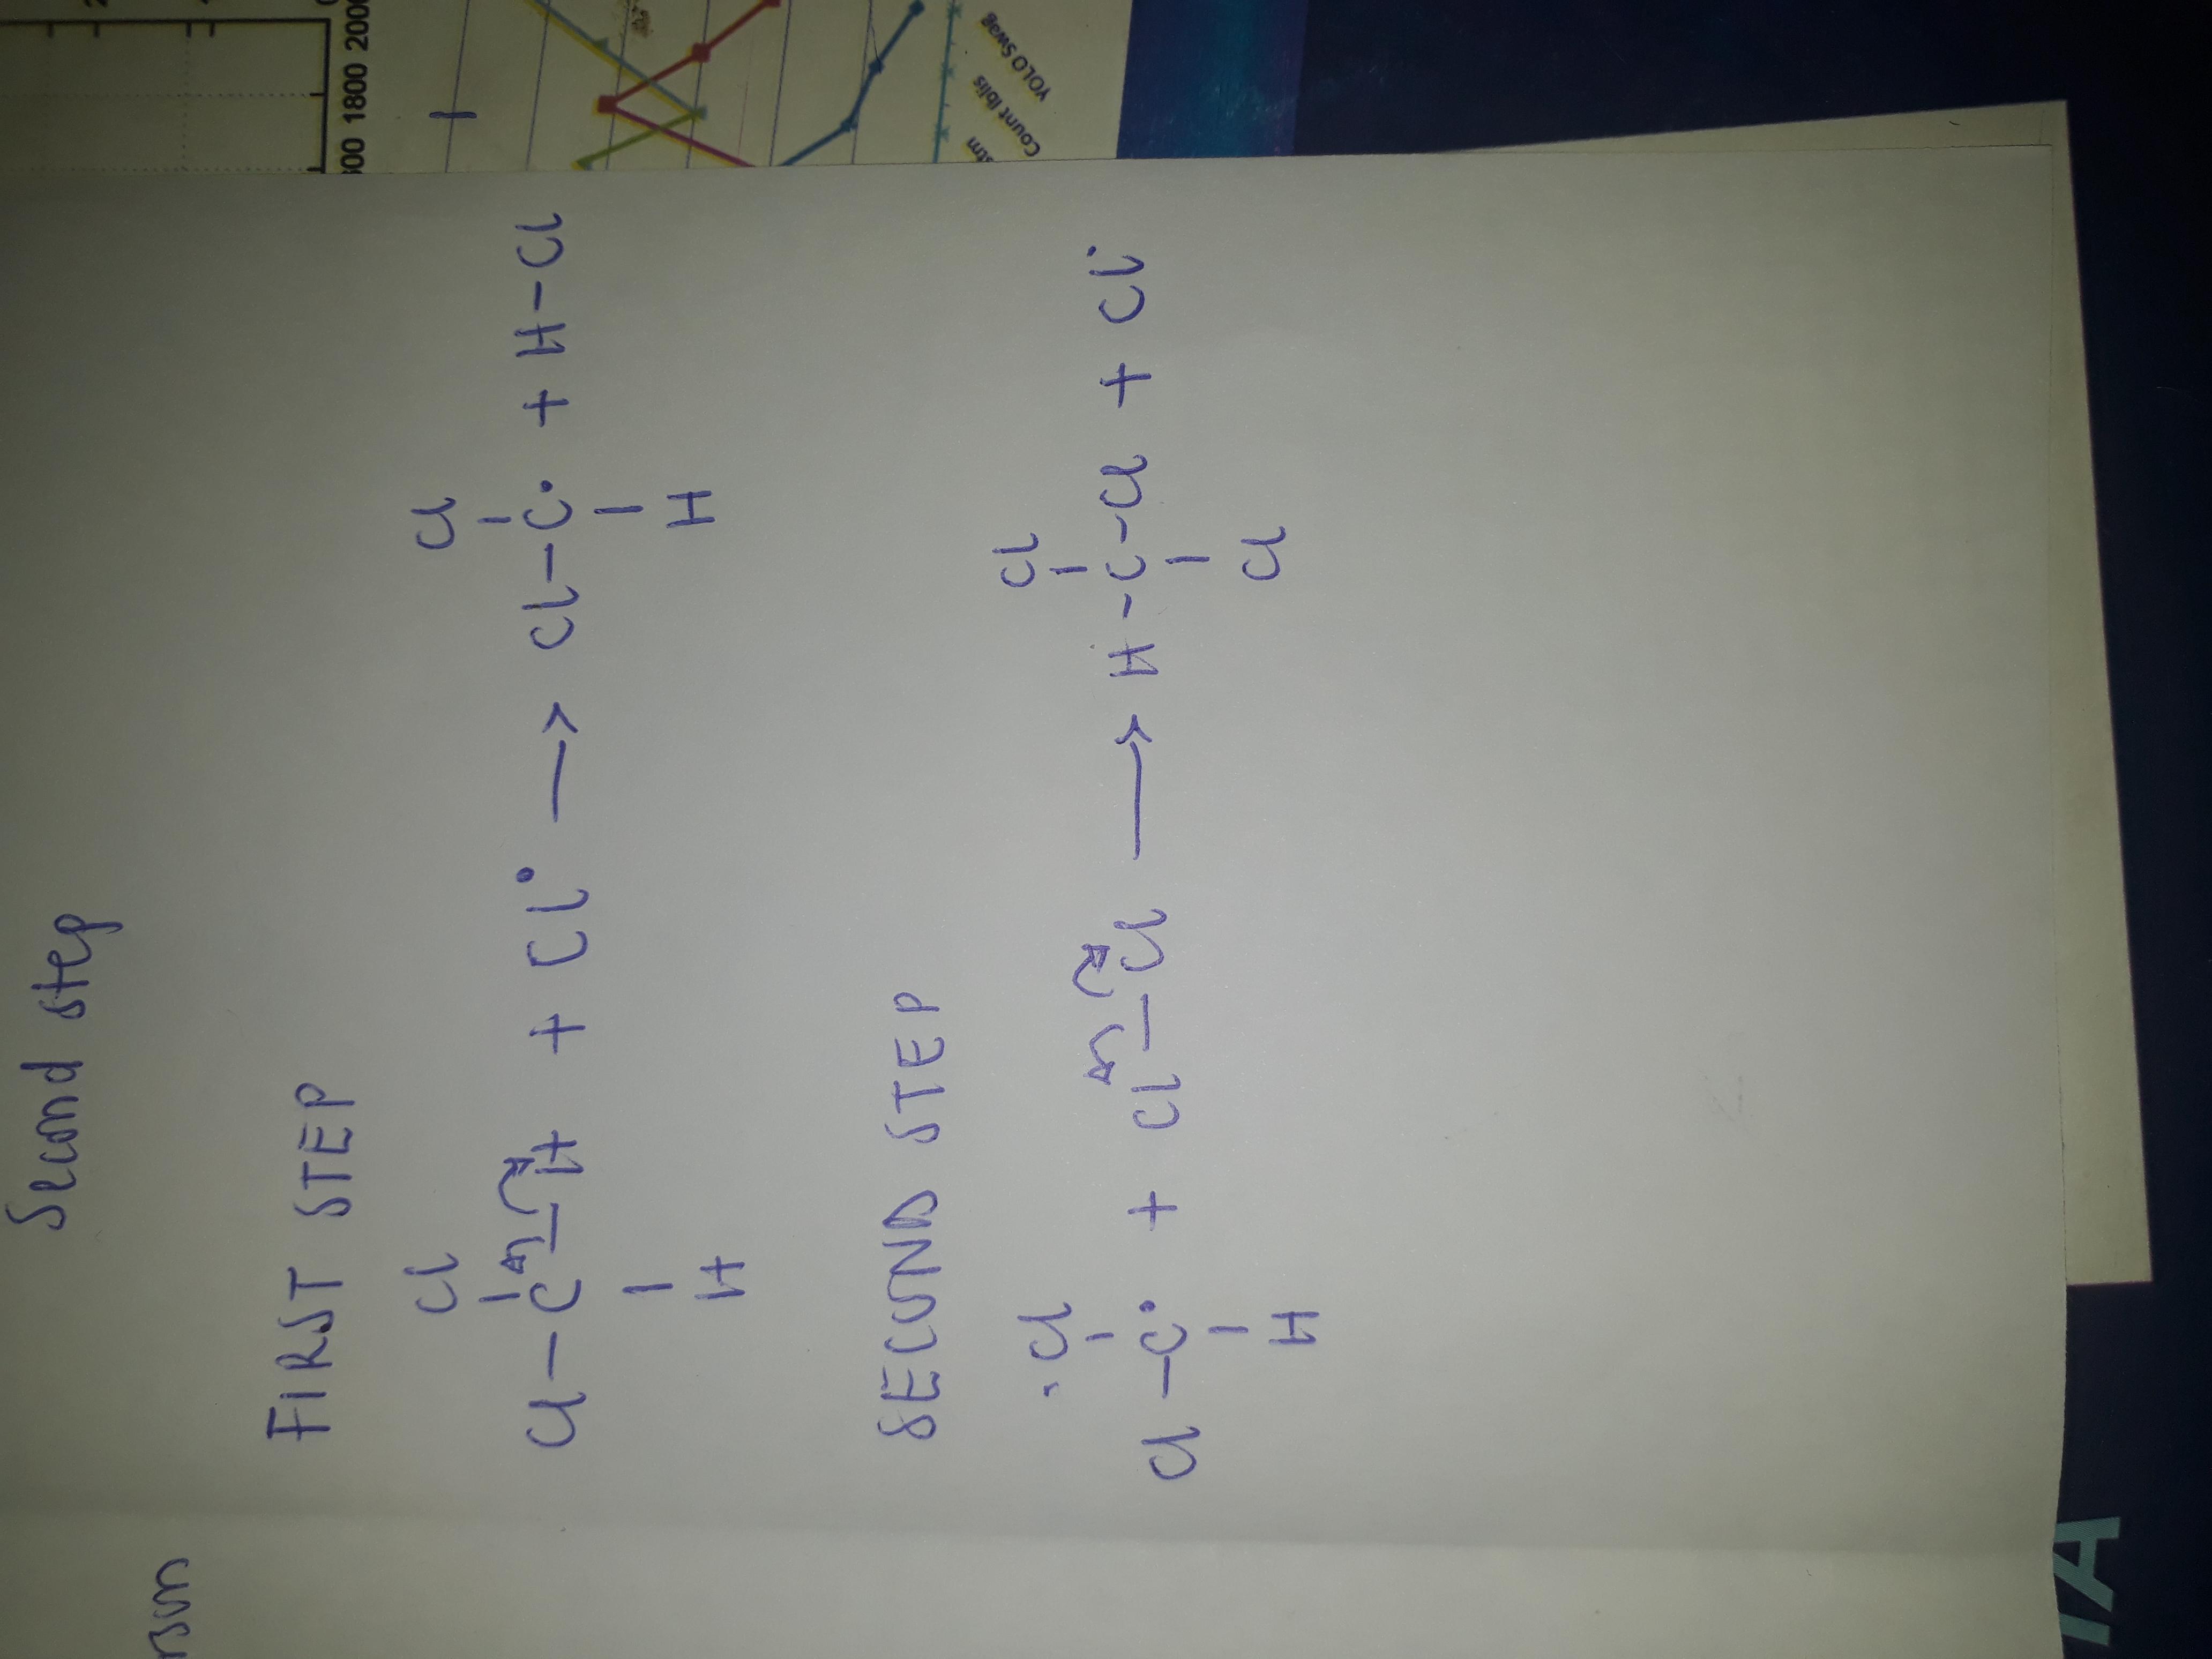 Second step
FIRST STEP
Cl
Cl — C — H + Cl• → Cl — C• + H — Cl
Cl
H
H
SECOND STEP
Cl
Cl — C• + Cl — Cl → H — C — Cl + Cl•
Cl
H
Cl
1800 2000
YOLO Swag
Count Iblis